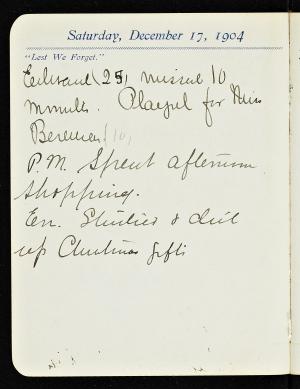 Saturday, December 17, 1904
"Lest We Forget."
(25) missed 10
minutes. Played for Miss
(10)
P.M. Spent afternoon
shopping.
Ev. Studied & did
up Christmas gifts